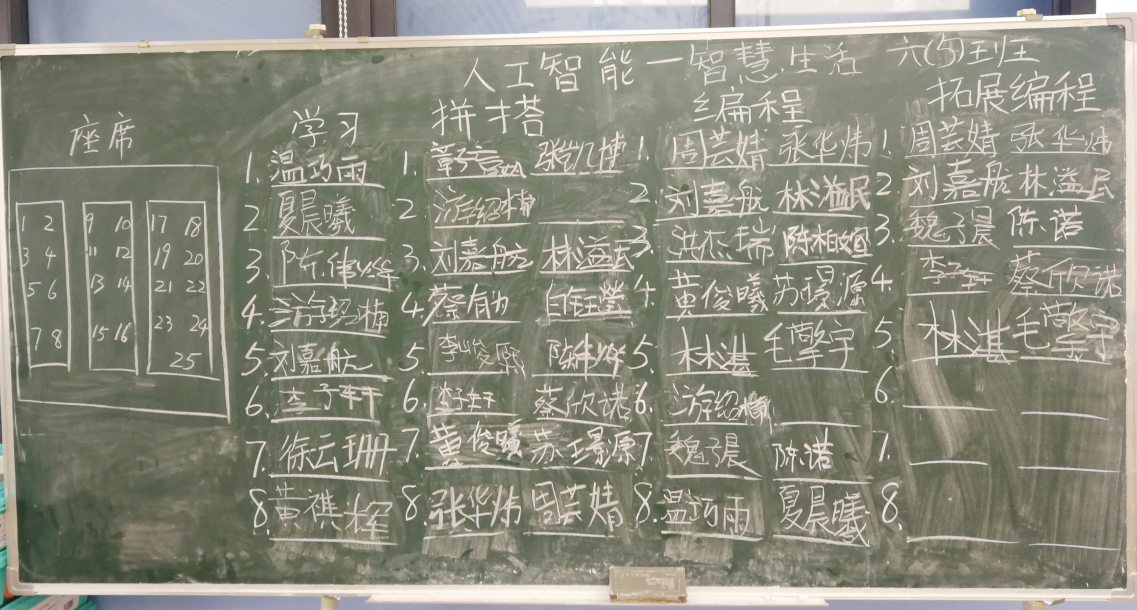 人工智能一智慧生活 六(5)班
座席 学习 拼搭 编程 拓展编程
1 2 9 10 17 18
3 4 11 12 19 20
5 6 13 14 21 22
7 8 15 16 23 24
25
1. 温巧雨
2. 夏晨曦
3. 陈佳烨
4. 游绍楠
5. 刘嘉航
6. 李子轩
7. 徐云珊
8. 黄祺辉
1. 张凯博
2 游绍楠
3. 刘嘉航 林溢民
4. 蔡有为 白钰莹
5. 李峻熙 陈佳烨
6. 李子轩 蔡欣诺
7. 黄俊曦 苏璟源
8. 张华炜 周芸婧
1. 周芸婧 张华炜
2. 刘嘉航 林溢民
3. 洪杰瑞 陈柏烜
4. 黄俊曦 苏璟源
5. 林湛 毛擎宇
6. 游绍楠
7 魏子晨 陈诺
8. 温巧雨 夏晨曦
1. 周芸婧 张华炜
2 刘嘉航 林溢民
3. 魏子晨 陈诺
4. 李子轩 蔡欣诺
5. 林湛 毛擎宇
6.
7.
8.